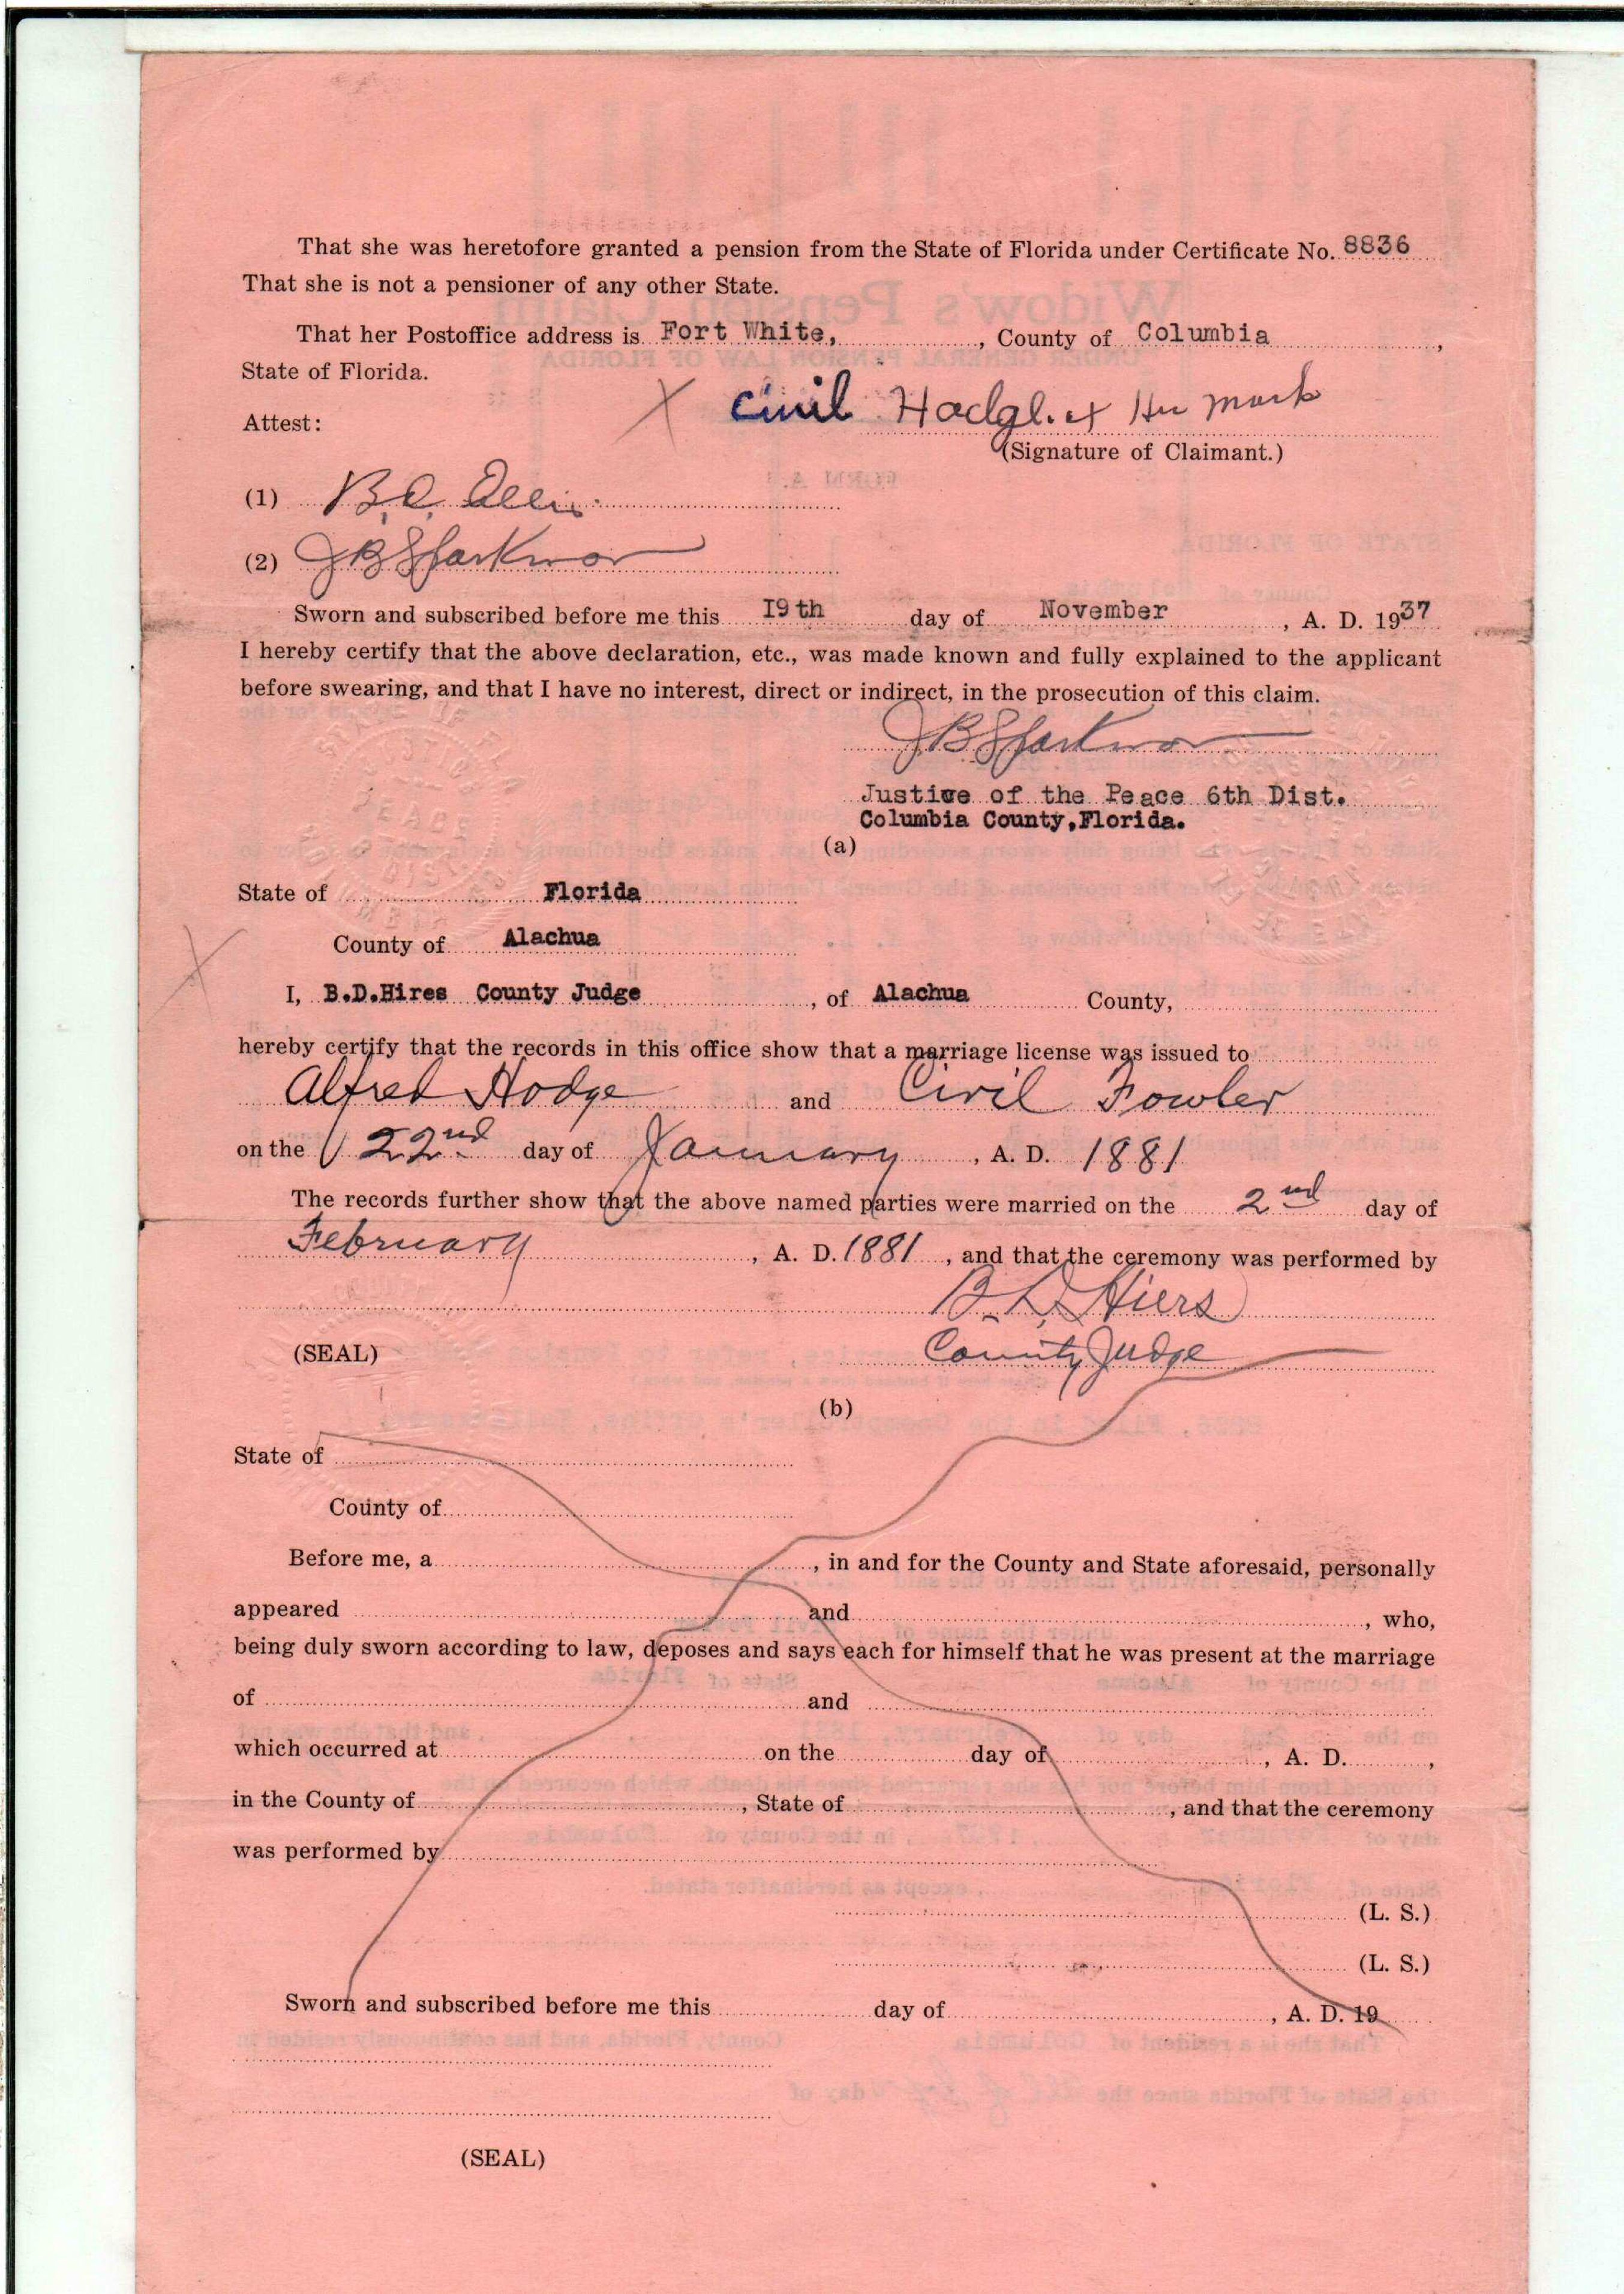 That she was heretofore granted a pension from the State of Florida under Certificate No. 8836
That she is not a pensioner of any other State.
That her Postoffice address is Fort White, , County of Columbia ,
State of Florida.
Attest: X Civil Hodge x Her mark
(Signature of Claimant.)
(1) B.
(2) J B
Sworn and subscribed before me this 19th day of November , A. D. 1937
I hereby certify that the above declaration, etc., was made known and fully explained to the applicant
before swearing, and that I have no interest, direct or indirect, in the prosecution of this claim.
J B
Justice of the Peace 6th Dist.
Columbia County,Florida.
(a)
State of Florida
County of Alachua
X
I, B.D.Hires County Judge , of Alachua County,
hereby certify that the records in this office show that a marriage license was issued to
Alfred Hodge and Civil Fowler
on the 22nd day of January , A. D. 1881
The records further show that the above named parties were married on the 2nd day of
February , A. D. 1881 , and that the ceremony was performed by
B. D. Hiers
(SEAL) County Judge
(b)
State of
County of
Before me, a , in and for the County and State aforesaid, personally
appeared and , who,
being duly sworn according to law, deposes and says each for himself that he was present at the marriage
of and
which occurred at on the day of , A. D. ,
in the County of , State of , and that the ceremony
was performed by
(L. S.)
(L. S.)
Sworn and subscribed before me this day of , A. D. 19
(SEAL)